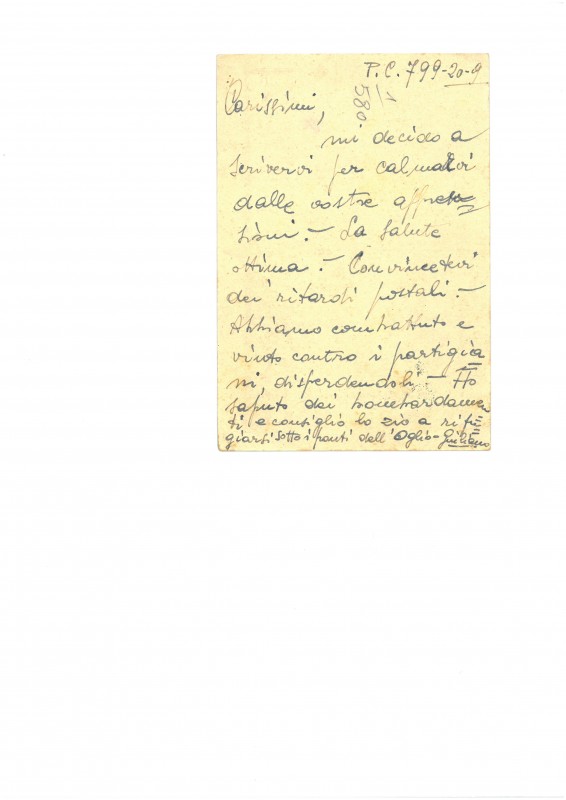 P.C. 799-20-9
1/580
Carissimi,
mi decido a
scrivervi per calmarvi
dalle vostre appren=
sioni.- La salute
ottima.- Convincetevi
dei ritardi postali.-
Abbiamo combattuto e
vinto contro i partigia
ni, disperdendoli.- Ho
saputo dei bombardamen
ti e consiglio lo zio a rifu=
giarsi sotto i ponti dell'Oglio- Giuliano